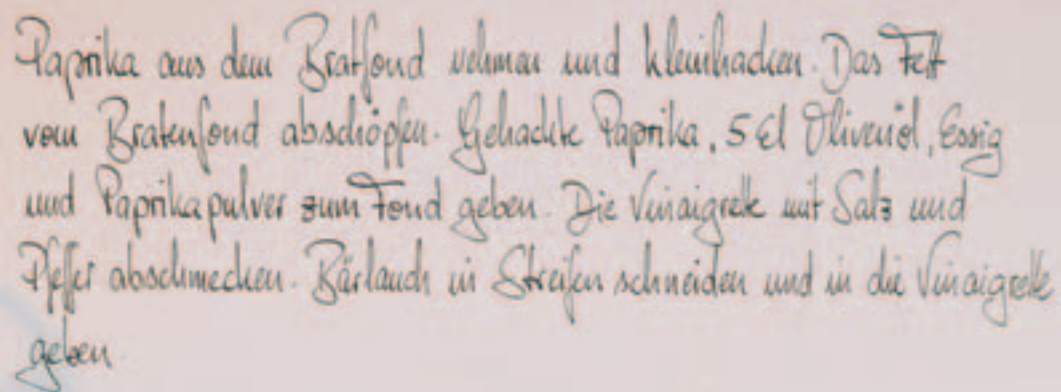 Paprika aus dem Bratfond nehmen und kleinhacken. Das Fett
vom Bratenfond abschöpfen. Gehackte Paprika, 5 El Olivenöl, Essig
und Paprikapulver zum Fond geben. Die Vinaigrette mit Salz und
Pfeffer abschmecken. Bärlauch in Streifen schneiden und in die Vinaigrette
geben.